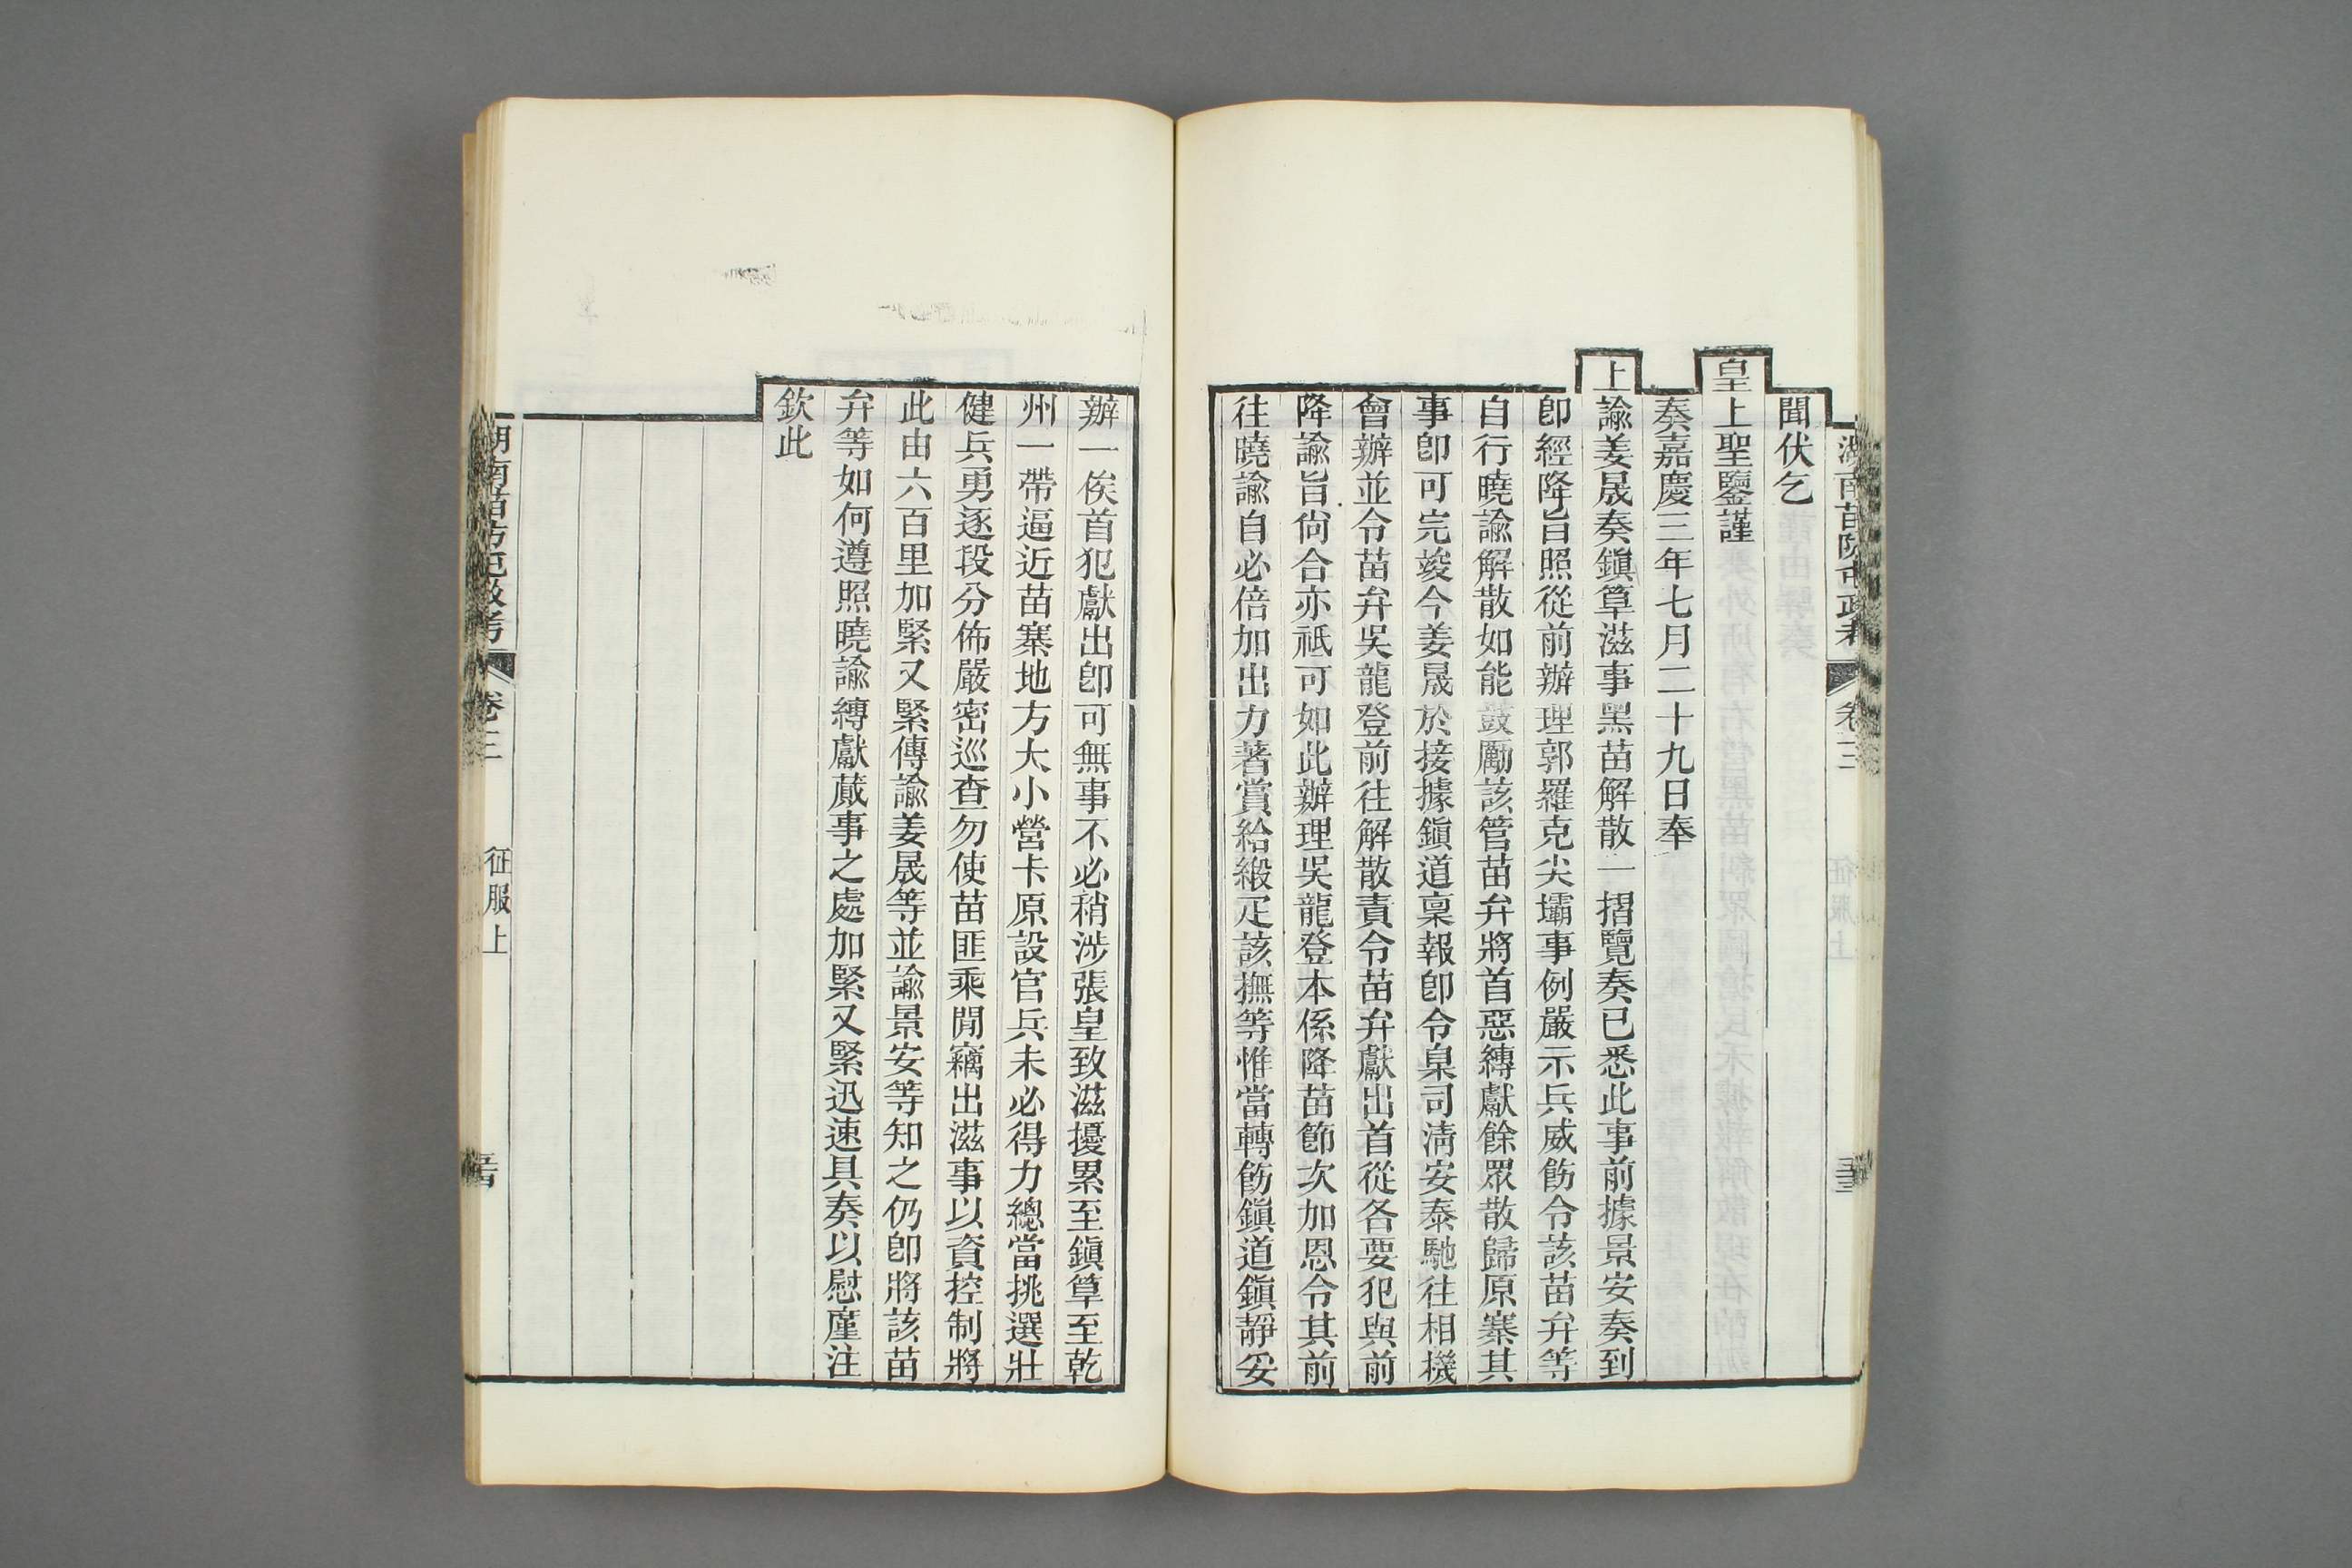 聞伏乞
皇上聖鑒謹
奏嘉慶三年七月二十九日奉
上諭姜晟奏鎭筸滋事黑苗解散一摺覽奏已悉此事前據景安奏到
卽經降旨照從前辦理郭羅克尖壩事例嚴示兵威飭令該苗弁等
自行曉諭解散如能鼓勵該管苗弁將首惡縛獻餘眾散歸原寨其
事卽可完竣今姜晟於接據鎭道稟報卽令臬司淸安泰馳往相機
會辦並令苗弁吳龍登前往解散責令苗弁獻出首從各要犯與前
降諭旨尙合亦祗可如此辦理吳龍登本係降苗節次加恩令其前
往曉諭自必倍加出力著賞給緞疋該撫等惟當轉飭鎭道鎭靜妥
辦一俟首犯獻出卽可無事不必稍涉張皇致滋擾累至鎭筸至乾
州一帶逼近苗寨地方大小營卡原設官兵未必得力總當挑選壯
健兵勇逐段分佈嚴密巡查勿使苗匪乘閒竊出滋事以資控制將
此由六百里加緊又緊傳諭姜晟等並諭景安等知之仍卽將該苗
弁等如何遵照曉諭縛獻蕆事之處加緊又緊迅速具奏以慰廑注
欽此
湖南苗防屯政考
卷三
征服上